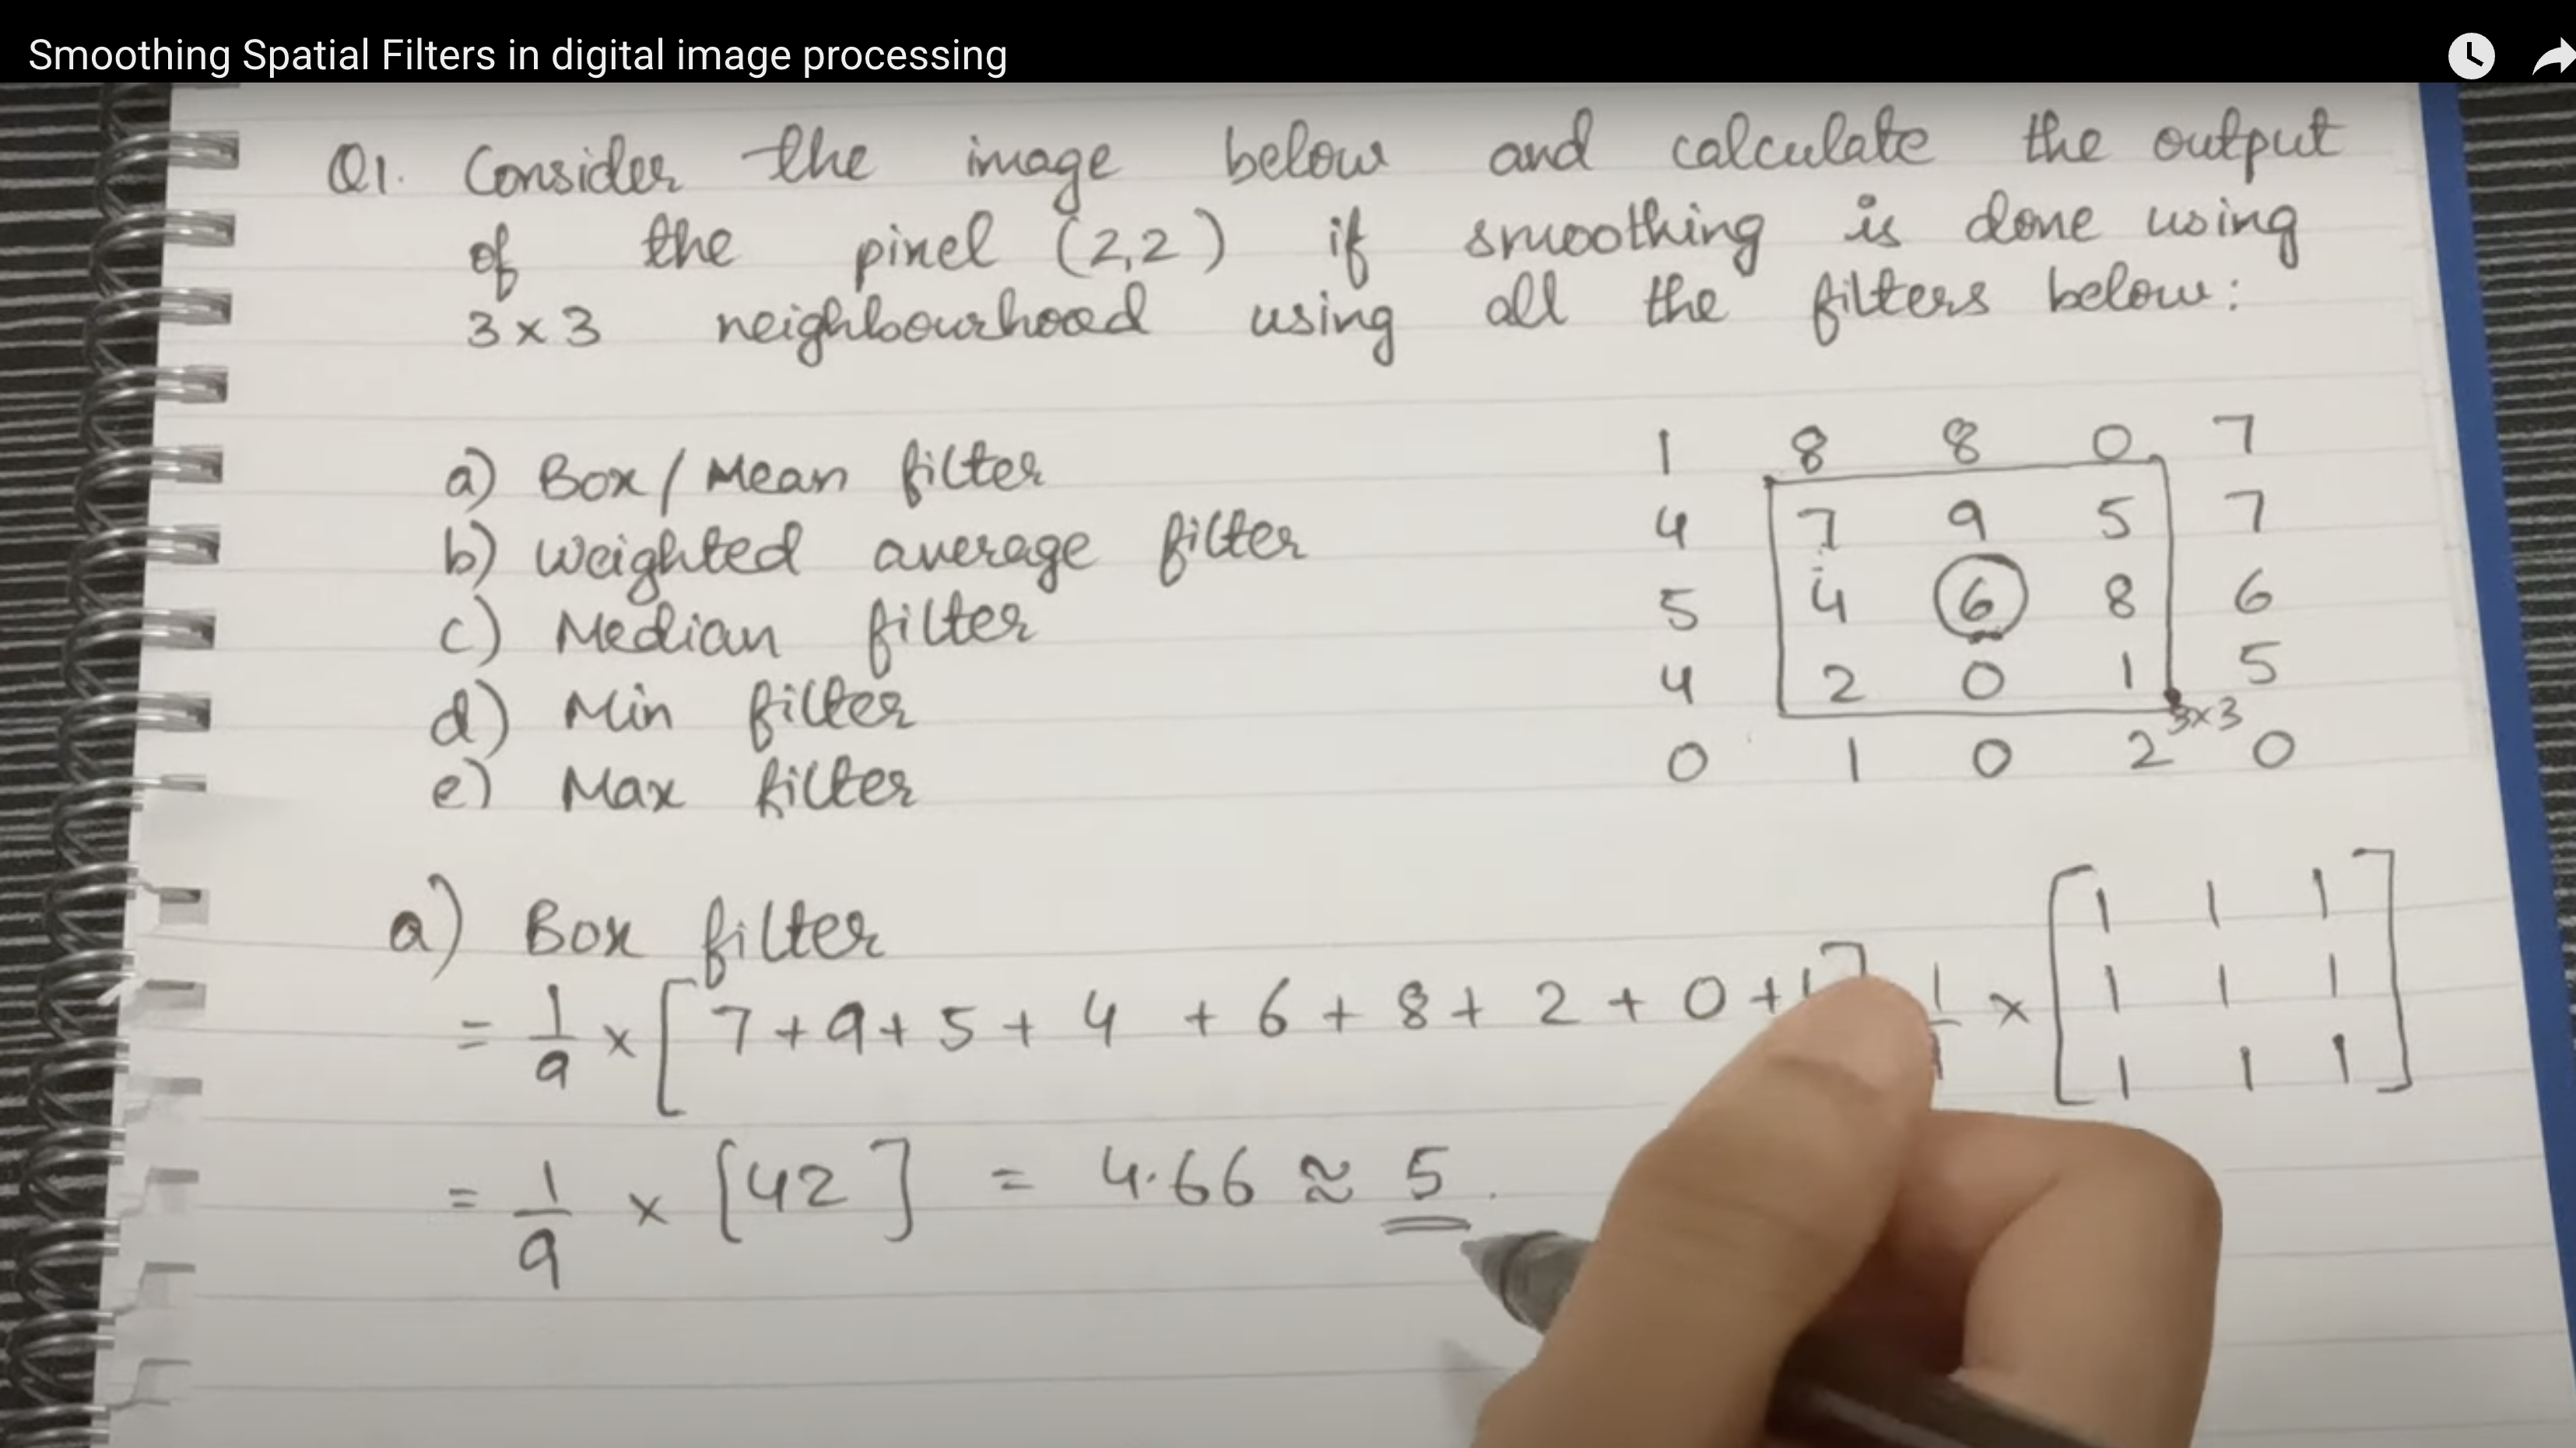 Smoothing Spatial Filters in digital image processing
Q1. Consider the image below and calculate the output
of the pixel (2,2) if smoothing is done using
3×3 neighbourhood using all the filters below:
a) Box/Mean filter
b) Weighted average filter
c) Median filter
d) Min filter
e) Max filter
1 8 8 0 7
4 7 9 5 7
5 4 6 8 6
4 2 0 1 5
3×3
0 1 0 2 0
a) Box filter
= 1/9 × [7+9+5+4+6+8+2+0+1]
1/9 × [1 1 1
1 1 1
1 1 1]
= 1/9 × [42] = 4.66 ≈ 5.